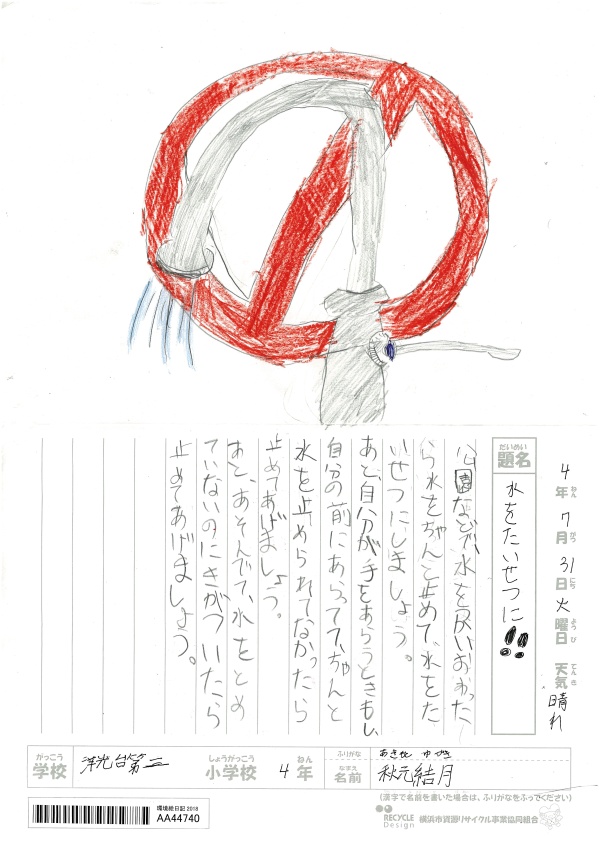 4年ねん7月がつ31日にち火曜日ようび天気てんき晴れ
だいめい
題名
水をたいせつに!!
公園などで、水を使いおわった
ら水をちゃんと止めて、水をた
いせつにしましょう。
あと、自分が手をあらうときもし、
自分の前にあらってて、ちゃんと
水を止められてなかったら
止めてあげましょう。
あと、あそんでて、水をとめ
ていないのにきがついたら
止めてあげましょう。
がっこう
学校
洋光台第三
しょうがっこう
小学校
4
ねん
年
ふりがな
なまえ
名前
あきもと ゆづき
秋元結月
(漢字で名前を書いた場合は、ふりがなをふってください)
環境絵日記 2018
AA44740
RECYCLE Design
横浜市資源リサイクル事業協同組合